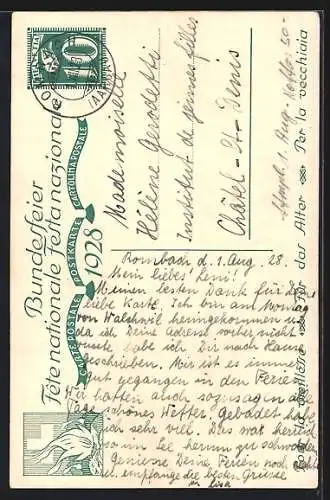 HELVETIA
10
(AARGAU)
Bundesfeier
Fête nationale Festa nazionale
CARTE POSTALE POSTKARTE CARTOLINA POSTALE
1928
Mademoiselle
Hélène
Institut de jeunes filles
Châtel-St-Denis
Pour la vieillesse Für das Alter Per la vecchiaia
1. Aug. 50-
Rombach d. 1. Aug. 28.
Mein liebes Leni!
Meinen besten Dank für Deine
liebe Karte. Ich bin am Montag
von Walchwil heimgekommen u
da ich Deine Adresse vorher nicht
wusste habe ich Dir nach Hause
geschrieben. Mir ist es immer
gut gegangen in den Ferien
Wir hatten auch sozusagen alle
Tage schönes Wetter, gebadet habe
ich sehr viel. Das war herrlich
so im See herum zu schwadern
Geniesse Deine Ferien noch recht
u. empfange die besten Grüsse
v. Lisa